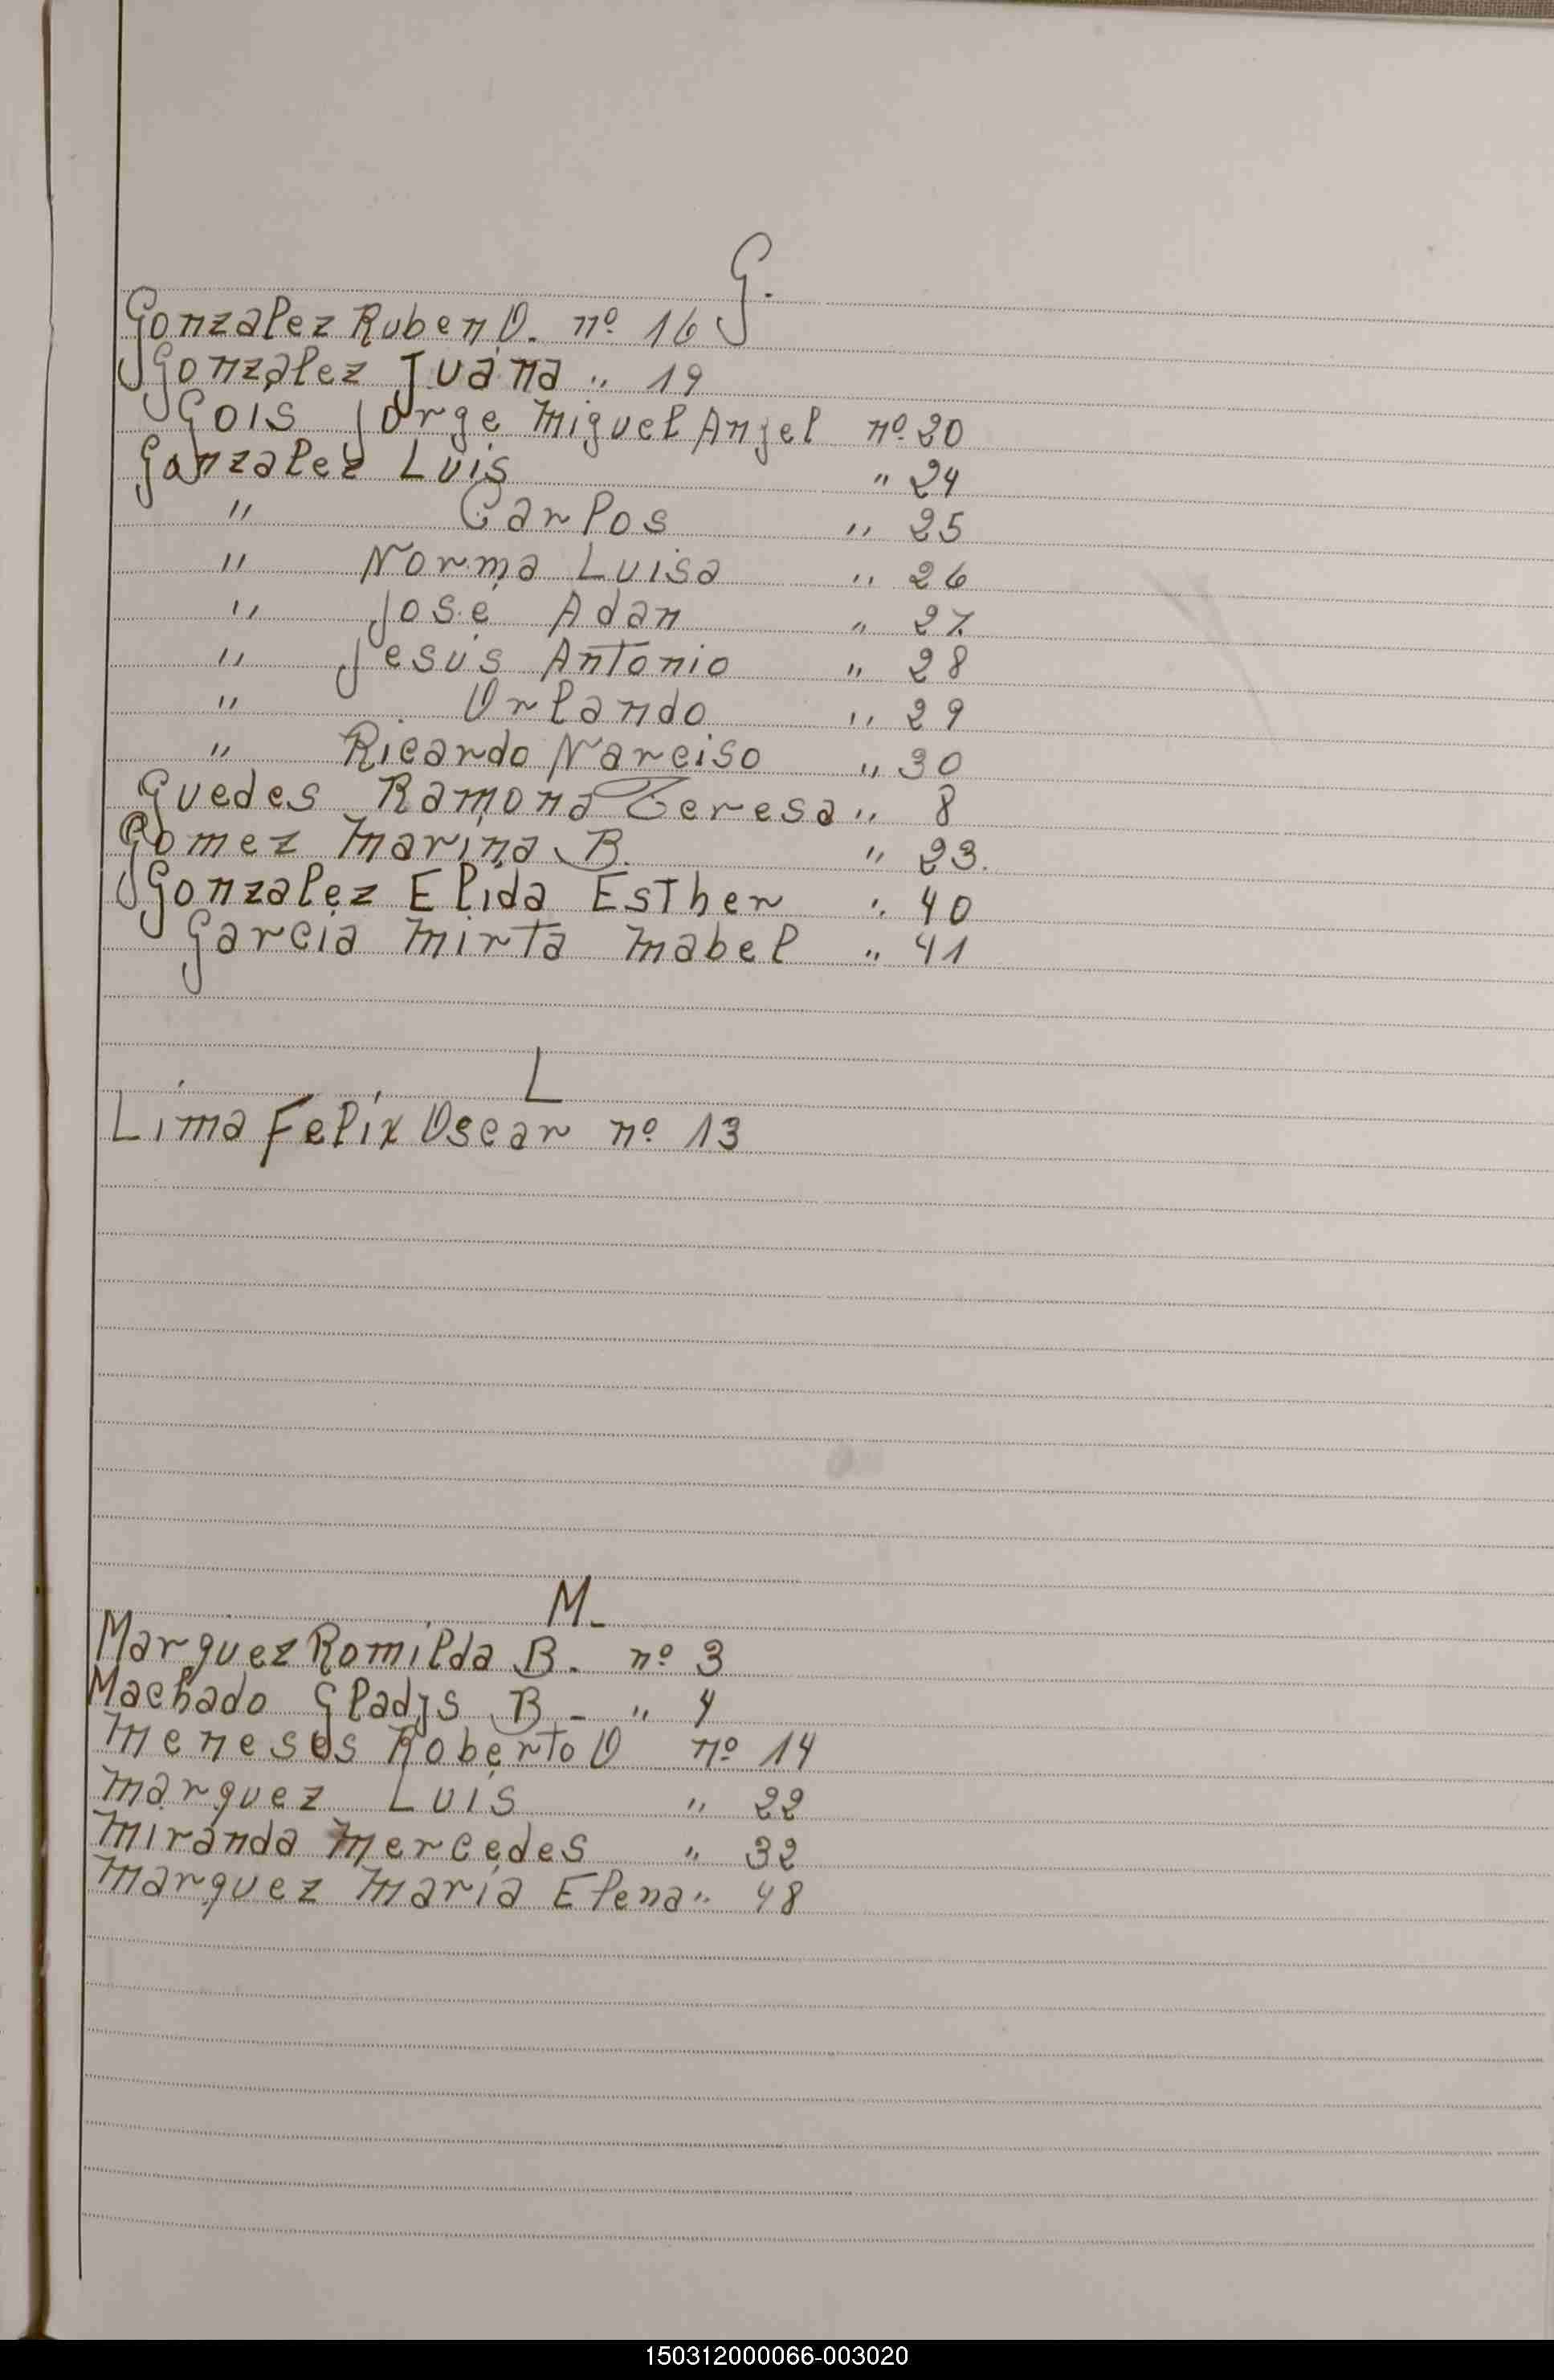 G.
Gonzalez Ruben O. nº 16
Gonzalez Juana " 19
Gois Jorge Miguel Angel nº 20
Gonzalez Luis " 24
" Carlos " 25
" Norma Luisa " 26
" José Adan " 27
" Jesús Antonio " 28
" Orlando " 29
" Ricardo Narciso " 30
Guedes Ramona Teresa " 8
Gomez Marina B. " 23.
Gonzalez Elida Esther " 40
Garcia Mirta Mabel " 41
L
Lima Felix Oscar nº 13
M.
Marquez Romilda B. nº 3
Machado Gladys B - " 4
Meneses Roberto O nº 14
Marquez Luis " 22
Miranda Mercedes " 32
Marquez Maria Elena " 48
150312000066-003020